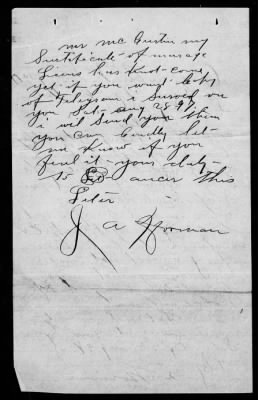 mr mc Curtin my
Surtificate of marage
Liens has not come
yet if you want copy
of Telegram i Served on
you Sat, aug 28 97
i will Send you them
you Can kindly let
me know if you
find it your duty
to ancer this
Leter
J A Norman